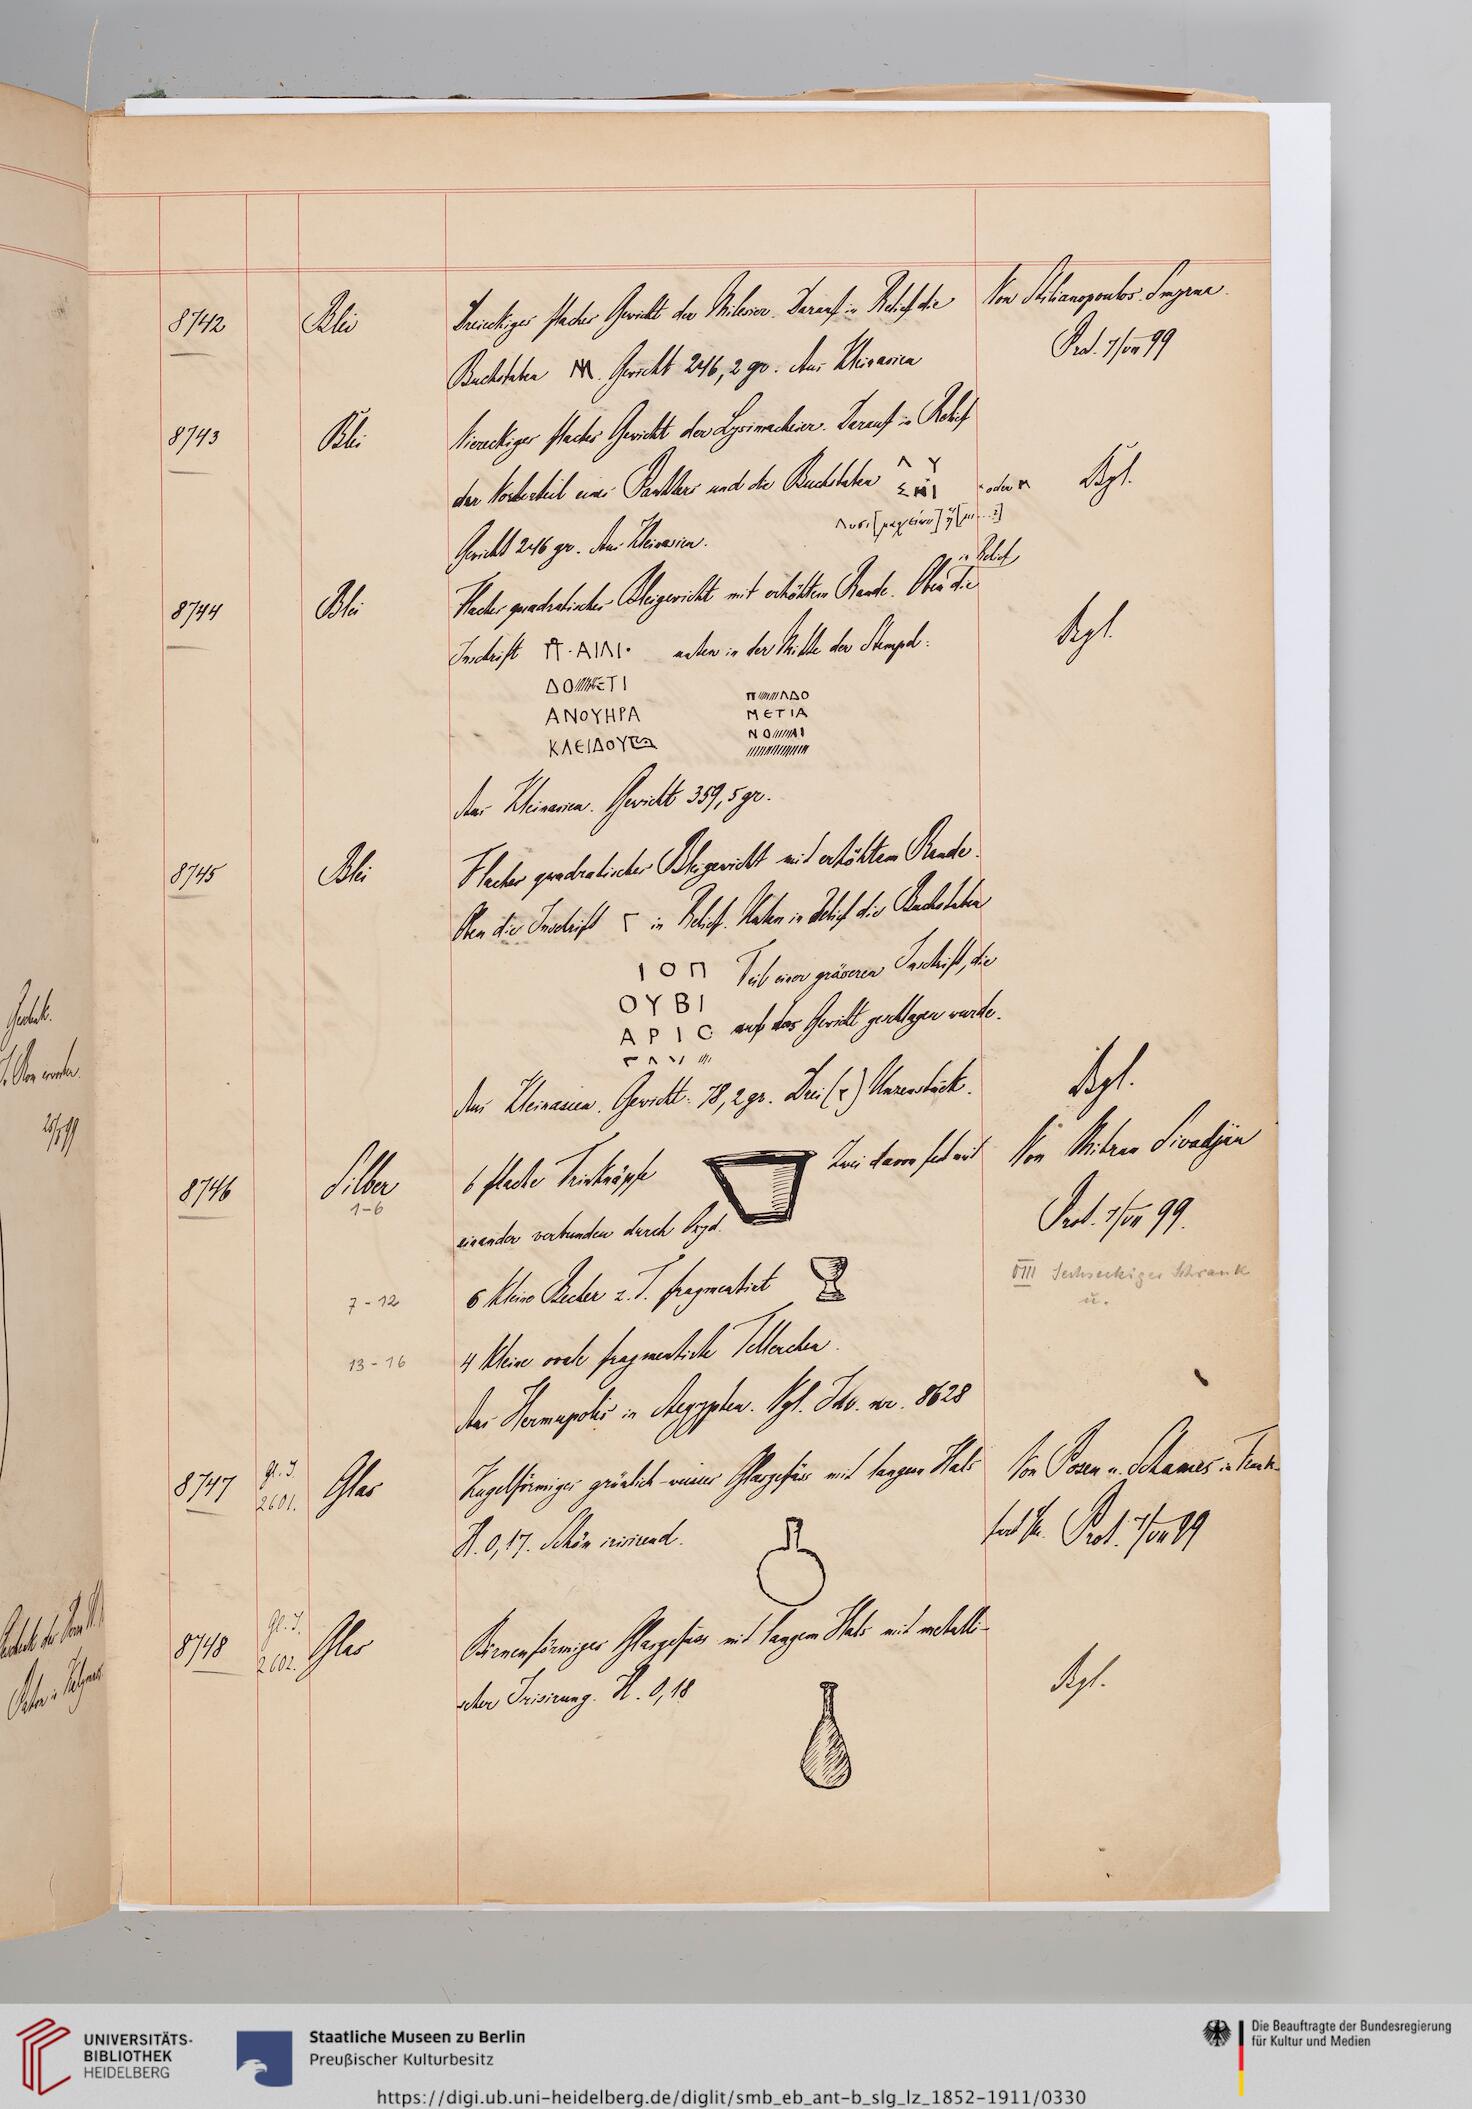 8742 Blei Dreieckiges flaches Gewicht der Milesier. Darauf in Relief die Von Stilianopoulos. Smyrna.
Buchstaben M. Gewicht 246,2 gr. Aus Kleinasien Prot. 7/VII 99
8743 Blei Viereckiges flaches Gewicht der Lysimacheier. Darauf in Relief
der Vorderteil eines Panthers und die Buchstaben Λ Υ
Σ Μ Ι oder Μ Dsgl.
Λυσι[μαχείων]
Gewicht 246 gr. Aus Kleinasien.
in Relief
8744 Blei Flaches quadratisches Bleigewicht mit erhöhtem Rande. Oben die
Inschrift Π · ΑΙΛΙ · unten in der Mitte der Stempel: Dsgl.
ΔΟ ΕΤΙ Π ΛΔΟ
ΑΝΟΥΗΡΑ ΜΕΤΙΑ
ΚΛΕΙΔΟΥ ΝΟ ΑΙ
Aus Kleinasien. Gewicht 359,5 gr.
8745 Blei Flaches quadratisches Bleigewicht mit erhöhtem Rande.
Oben die Inschrift Γ in Relief. Unten in Relief die Buchstaben
Ι Ο Π Teil einer grösseren Inschrift, die
ΟΥΒΙ
ΑΡΙC auf das Gewicht geschlagen wurde.
Aus Kleinasien. Gewicht: 78,2 gr. Drei (Γ) Unzenstück. Dsgl.
8746 Silber 6 flache Trinknäpfe Zwei davon fest mit Von Mihran Sivadjan
1-6
einander verbunden durch Oxyd. Prot. 7/VII 99.
VIII Sechseckiger Schrank
u.
7-12 6 kleine Becher z. T. fragmentiert
13-16 4 kleine ovale fragmentierte Tellerchen.
Aus Hermupolis in Aegypten. Vgl. Inv. nr. 8628
8747 Gl. I. 2601. Glas Kugelförmiges grünlich-weisses Glasgefäss mit langem Hals Von Posen u. Schames in Frank-
H. 0,17. Schön irisirend. furt M. Prot. 7/VII 99
8748 Gl. I. 2602. Glas Birnenförmiges Glasgefäss mit langem Hals mit metalli-
scher Irisirung. H. 0,18 Dsgl.
Geschenk.
25/5 99
UNIVERSITÄTS-
BIBLIOTHEK
HEIDELBERG
Staatliche Museen zu Berlin
Preußischer Kulturbesitz
Die Beauftragte der Bundesregierung
für Kultur und Medien
https://digi.ub.uni-heidelberg.de/diglit/smb_eb_ant-b_slg_lz_1852-1911/0330